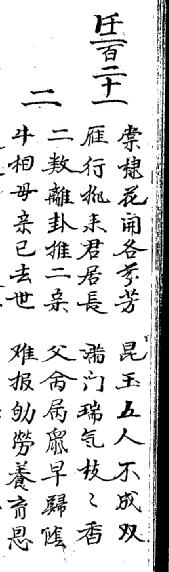 任一百二十一
二
棠棣花開各芬芳 昆玉五人不成双
雁行排来君居長 满门瑞气枝々香
二数離卦推二亲 父命属鼠早歸陰
牛相母亲已去世 难报劬勞養育恩